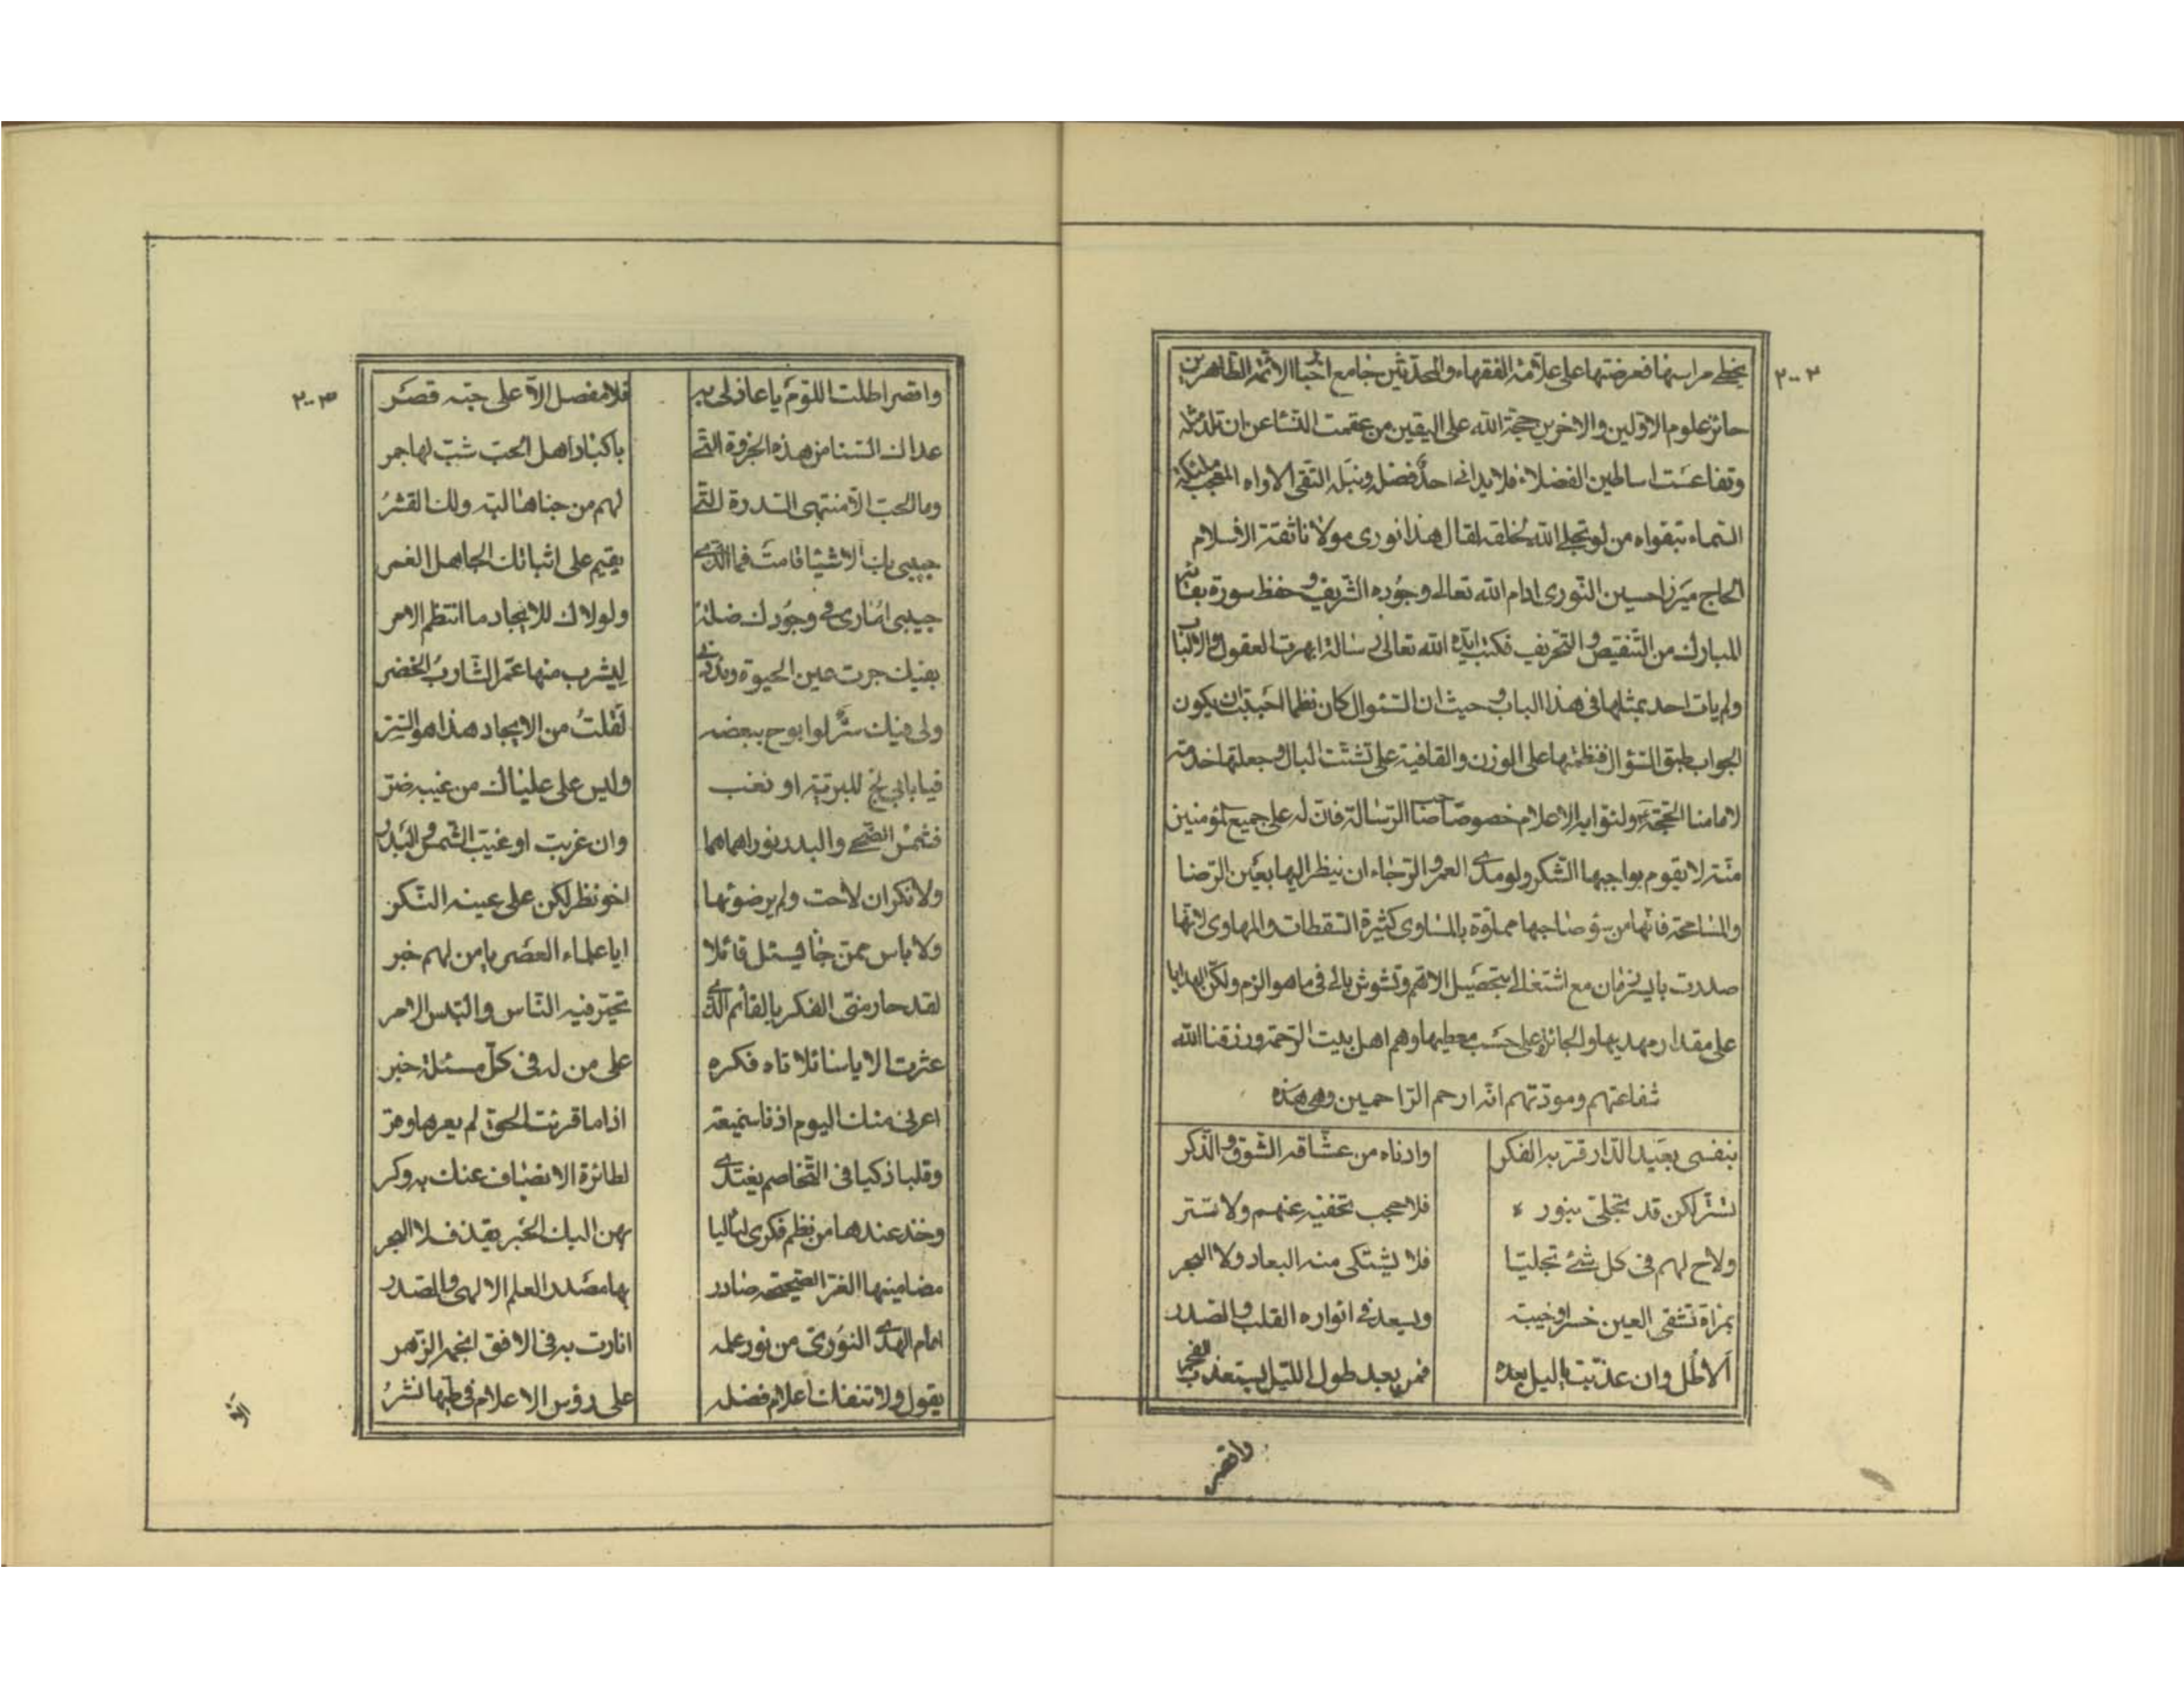 ٢٠٠٢
يخطى مراسنها فعرضتها على علامة الفقهاء والمحدثين جامع اخبار الائمة الطاهرين
حائز علوم الاولين والاخرين حجة الله على اليقين من عقمت النساء عن ان تلد مثله
وتقاعست اساطين الفضلاء فلا يدانيه احد فضله ونبله التقى الاواه المعجب ملئكة
السماء بتقواه من لو تجلى الله لخلقه لقال هذا نورى مولانا ثقة الاسلام
الحاج ميرزا حسين النورى ادام الله تعالى وجوده الشريف وحفظ سورة بقائه
المبارك من التنقيص والتحريف فكتب ايده الله تعالى رسالة ابهرت العقول والالباب
ولم يات احد بمثلها فى هذا الباب وحيث ان السئوال كان نظما احببت ان يكون
الجواب طبق السئوال فنظمتها على الوزن والقافية على تشتت البال وجعلتها خدمة
لامامنا الحجة ع ولنوابه الاعلام خصوصا صاحب الرسالة فان له على جميع المؤمنين
منة لا يقوم بواجبها الشكر ولو مدى العمر والرجاء ان ينظر اليها بعين الرضا
والمسامحة فانها من سؤ صاحبها مملوة بالمساوى كثيرة السقطات والمهاوى لانها
صدرت بايسر زمان مع اشتغالى بتحصيل الاهم وتشوش بالى فى ما هو الزم ولكن الهدايا
على مقدار مهديها والجائزة على حسب معطيها وهم اهل بيت الرحمة ورزقنا الله
شفاعتهم ومودتهم انه ارحم الراحمين وهى هذه
بنفسى بعيد الدار قربه الفكر وادناه من عشاقه الشوق والذكر
تستر لكن قد تجلى بنوره فلا حجب تخفيه عنهم ولا ستر
ولاح لهم فى كل شئ تجليا فلا يشتكى منه البعاد ولا الهجر
بمراة تشقى العين خسرا وخيبة ويسعد فى انواره القلب والصدر
ألا طل وان عذبت ياليل بعده فمن بعد طول الليل يستعذب الفجر
واقصر
٢٠٠٣
واقصر اطلت اللوم يا عاذلى به فلا مفصل الا على حبه قصر
عداك السنا من هذه الجزوة التى باكباد اهل الحب شب لها جمر
وما الحب الا منتهى السدرة التى لهم من جناها لبه ولك القشر
حبيبى بك الاشيا قامت فما الذى يقيم على اثباتك الجاهل الغمر
حبيبى انارى فى وجودك ضلة ولولاك للايجاد ما انتظم الامر
بفيك جرت عين الحيوة ليشرب منها عمر الشارب الخضر
ولى فيك سر لو ابوح ببعضه لقلت من الايجاد هذا هو السر
فيا بابى للبرية او تغب وليس على علياك من غيبه ضر
فشمس الضحى والبدر نوراهما هما وان غربت او غيب الشمس والبدر
ولا نكر ان لاحت ولم ير ضوئها اخو نظر لكن على عينه النكر
ولا باس ممن جا يسئل قائلا ايا علماء العصر يا من لهم خبر
لقد حار منى الفكر بالقائم الذى تحير فيه الناس والتبس الامر
عثرت الا يا سائلا تاه فكره على من له فى كل مسئلة خبر
اعرنى منك اليوم اذنا سميعة اذا ما قرئت الحق لم يعرها وقر
وقلبا ذكيا فى التخاصم يغتدى لطائرة الانصاف عنك به وكر
وخذ عندها من نظم فكرى لئاليا بهن اليك الحبر يقذف لا البحر
مضامينها الغر الصحيحة صادر بها مصدر العلم الالهى والصدر
امام الهدى النورى من نور علمه انارت به فى الافق انجمه الزهر
يقول ولا تنفك اعلام فضله على رؤس الاعلام فى طيها نشر